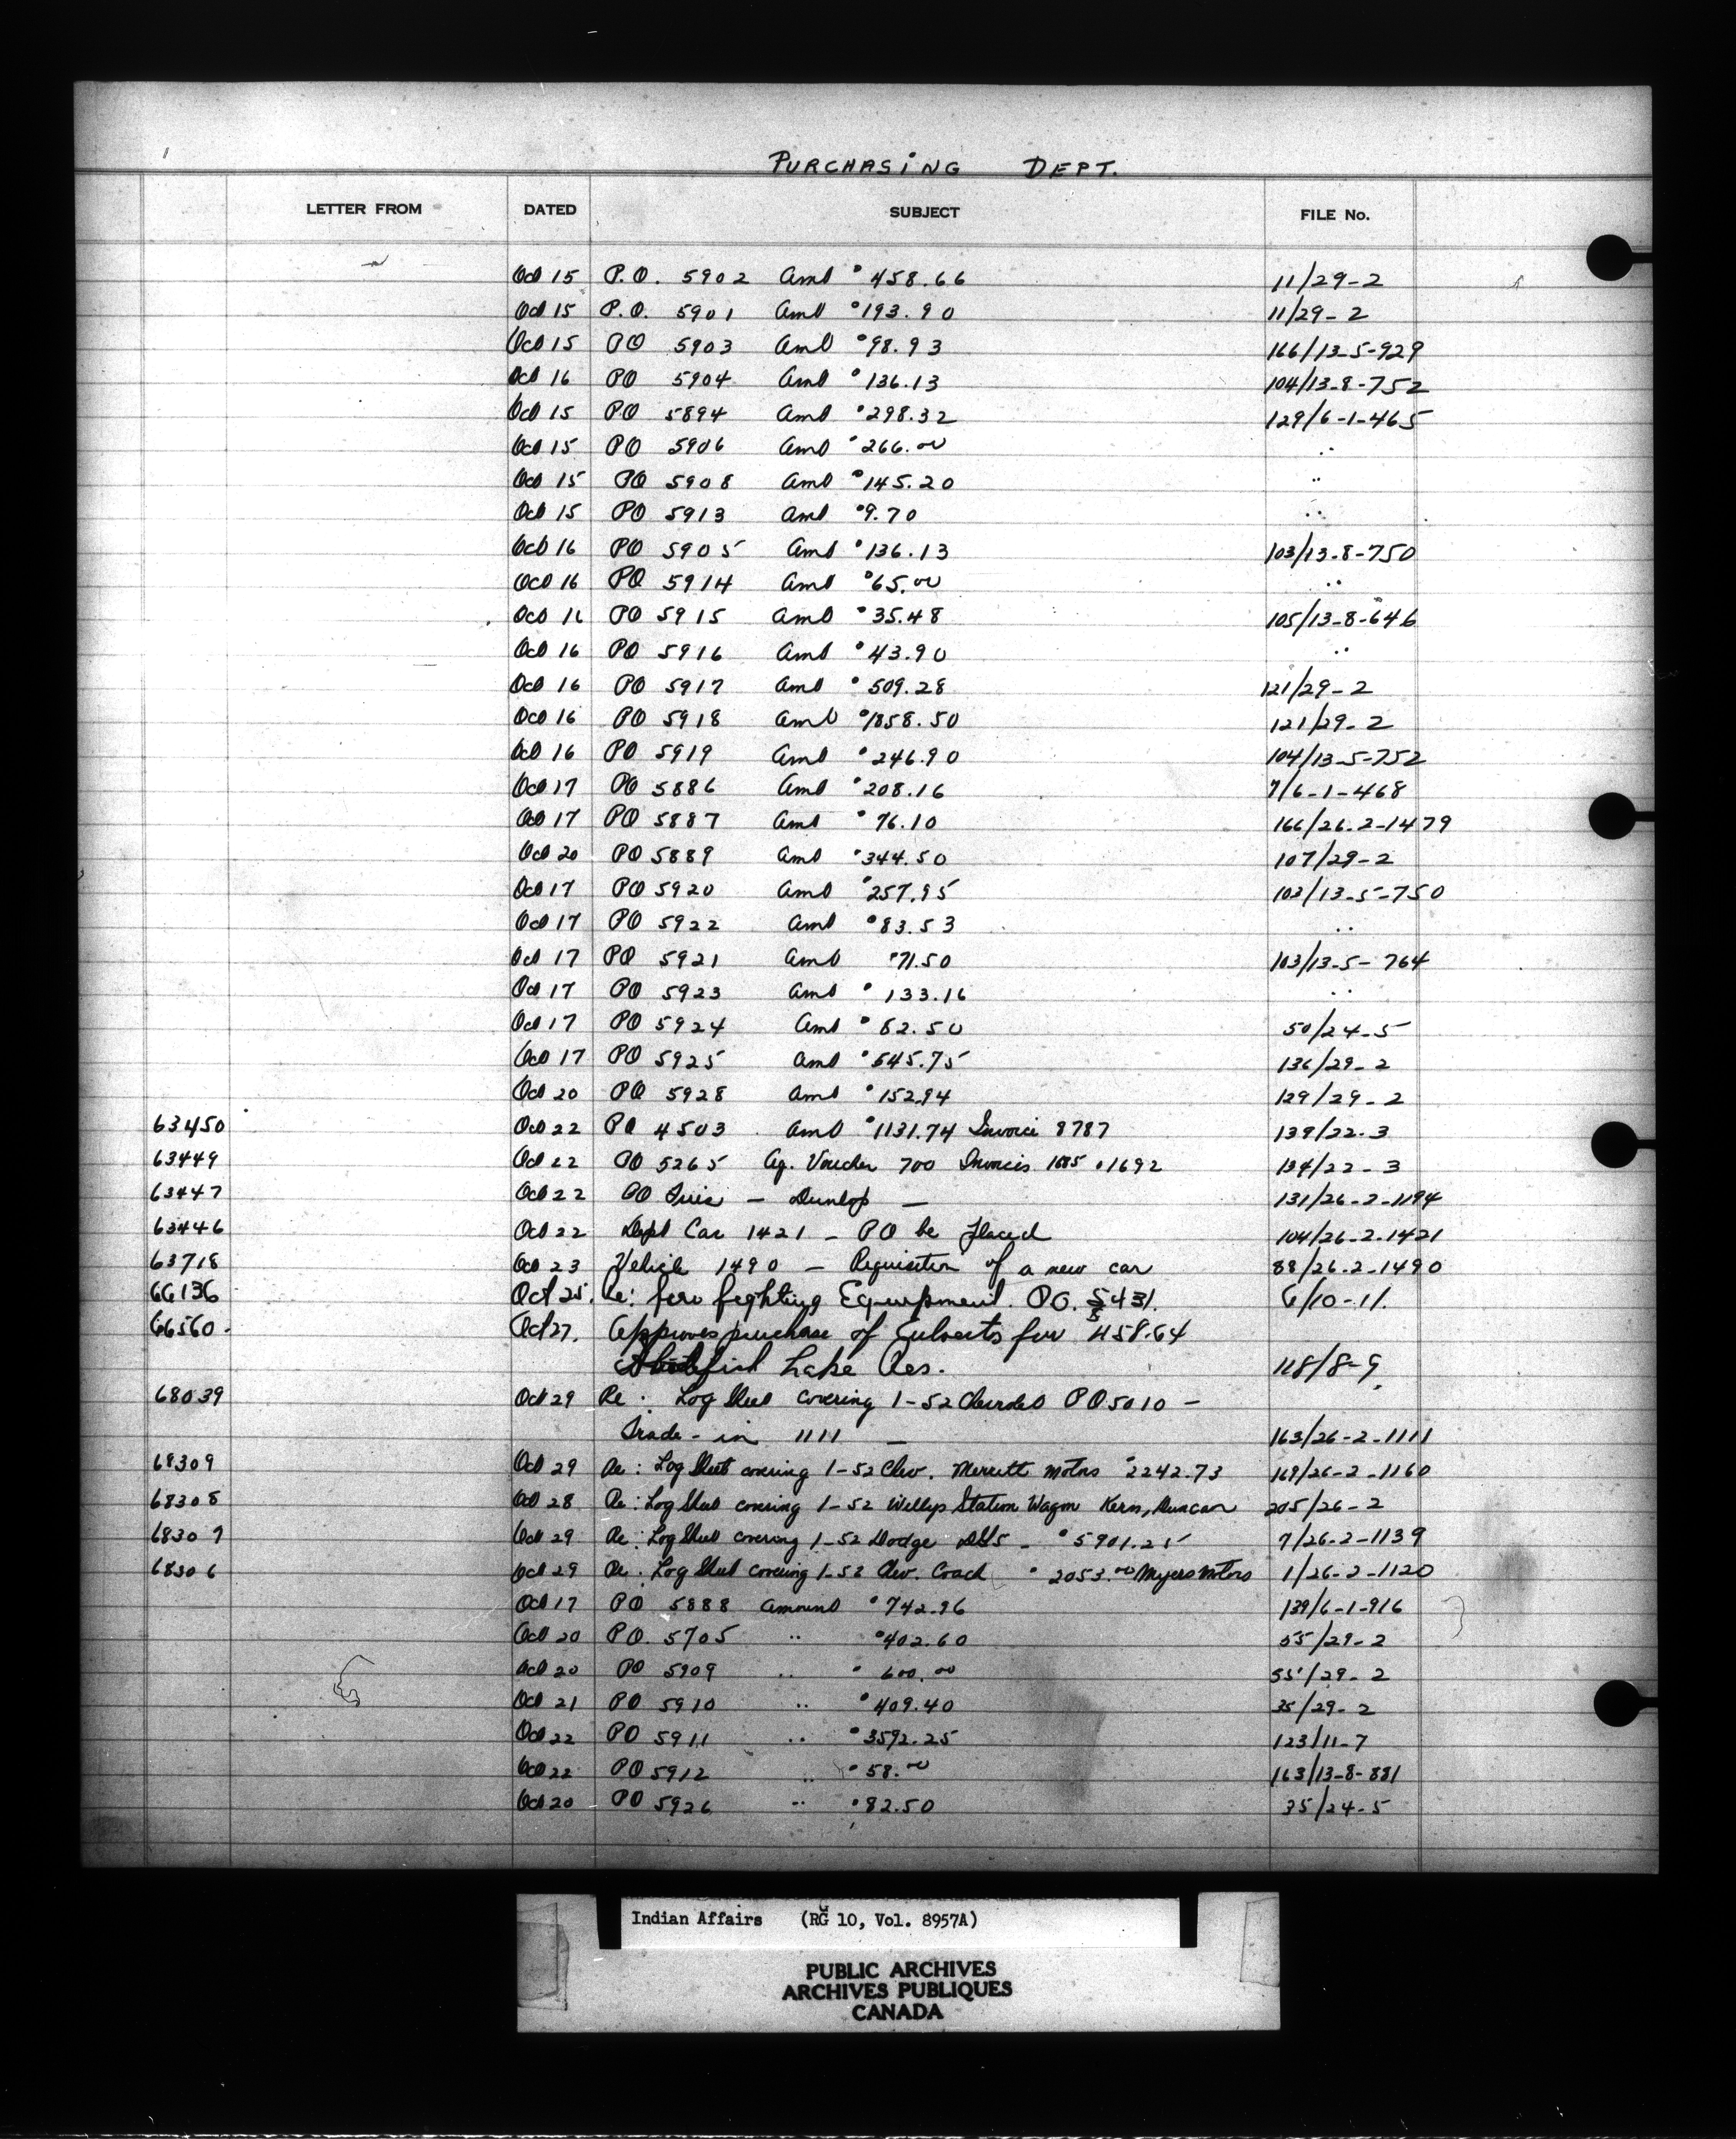 PURCHASING DEPT.
LETTER FROM DATED SUBJECT FILE No.
Oct 15 P.O. 5902 Amt $458.66 11/29-2
Oct 15 P.O. 5901 Amt $193.90 11/29-2
Oct 15 PO 5903 Amt $98.93 166/13-5-929
Oct 16 PO 5904 Amt $136.13 104/13-8-752
Oct 15 PO 5894 Amt $298.32 129/6-1-465
Oct 15 PO 5906 Amt $266.00 "
Oct 15 PO 5908 Amt $145.20 "
Oct 15 PO 5913 Amt $9.70 "
Oct 16 PO 5905 Amt $136.13 103/13-8-750
Oct 16 PO 5914 Amt $65.00 "
Oct 16 PO 5915 Amt $35.48 105/13-8-646
Oct 16 PO 5916 Amt $43.90 "
Oct 16 PO 5917 Amt $509.28 121/29-2
Oct 16 PO 5918 Amt $1858.50 121/29-2
Oct 16 PO 5919 Amt $246.90 104/13-5-752
Oct 17 PO 5886 Amt $208.16 7/6-1-468
Oct 17 PO 5887 Amt $76.10 166/26-2-1479
Oct 20 PO 5889 Amt $344.50 107/29-2
Oct 17 PO 5920 Amt $257.95 103/13-5-750
Oct 17 PO 5922 Amt $83.53 "
Oct 17 PO 5921 Amt $71.50 103/13-5-764
Oct 17 PO 5923 Amt $133.16 "
Oct 17 PO 5924 Amt $82.50 50/24-5
Oct 17 PO 5925 Amt $645.75 136/29-2
Oct 20 PO 5928 Amt $152.94 129/29-2
63450 Oct 22 PO 4503 Amt $1131.74 Invoice 8787 139/22-3
63449 Oct 22 PO 5265 Ag. Voucher 700 Invoices 1685 & 1692 134/22-3
63447 Oct 22 PO Tires - Dunlop - 131/26-2-1194
63446 Oct 22 Dept Car 1421 - PO be placed 104/26-2-1421
63718 Oct 23 Vehicle 1490 - Requisition of a new car 88/26-2-1490
66136 Oct 25. Re: fire fighting Equipment. PO. 5431. 6/10-11.
66560. Oct 27. Approves purchase of Culverts for $458.64
Lake Res. 118/8-9
68039 Oct 29 Re: Log Sheet covering 1-52 Chevrolet PO 5010 -
Trade-in 1111 - 163/26-2-1111
68309 Oct 29 Re: Log Sheet covering 1-52 Chev. Merrett Motors $2242.73 169/26-2-1160
68308 Oct 28 Re: Log Sheet covering 1-52 Willys Station Wagon Kern, Duncan 205/26-2
68307 Oct 29 Re: Log Sheet covering 1-52 Dodge - $5901.25 7/26-2-1139
68306 Oct 29 Re: Log Sheet covering 1-52 Chev. Coach $2053.00 Myers Motors 1/26-2-1120
Oct 17 PO 5888 Amount $742.96 139/6-1-916
Oct 20 PO. 5705 " $402.60 55/29-2
Oct 20 PO 5909 " $600.00 55/29-2
Oct 21 PO 5910 " $409.40 35/29-2
Oct 22 PO 5911 " $3592.25 123/11-7
Oct 22 PO 5912 " $58.00 163/13-8-881
Oct 20 PO 5926 " $82.50 35/24-5
Indian Affairs (RG 10, Vol. 8957A)
PUBLIC ARCHIVES
ARCHIVES PUBLIQUES
CANADA